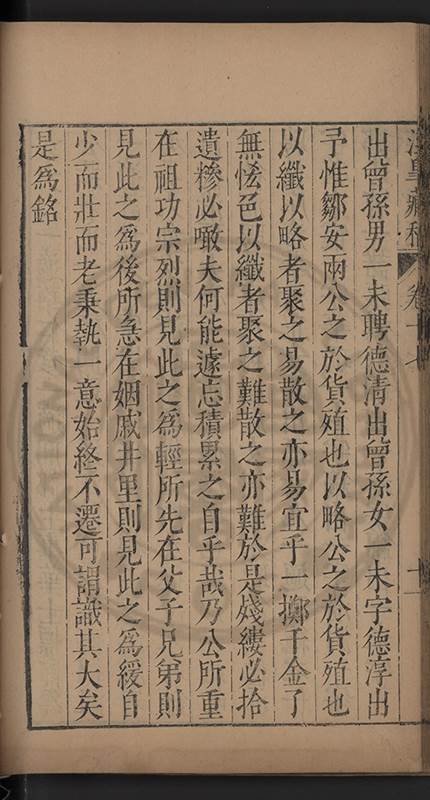 藏稿 卷十七 十
出曾孫男一未聘德清出曾孫女一未字德淳出
予惟鄒安兩公之於貨殖也以略公之於貨殖也
以纖以略者聚之易散之亦易宜乎一擲千金了
無恡色以纖者聚之難散之亦難於是殘縷必拾
遺糝必噉夫何能遽忘積累之自乎哉乃公所重
在祖功宗烈則見此之爲輕所先在父子兄弟則
見此之爲後所急在姻戚井里則見此之爲緩自
少而壯而老秉執一意始終不遷可謂識其大矣
是爲銘